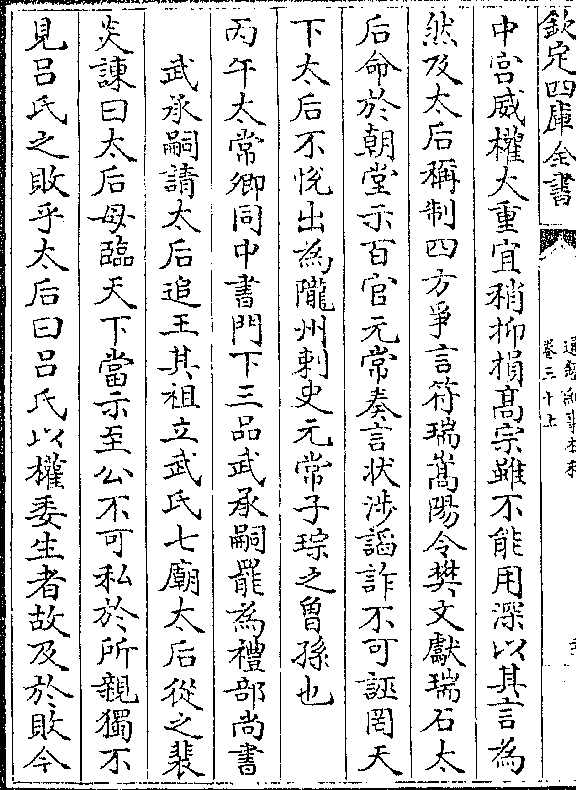 欽定四庫全書
通鑑紀事本末
卷三十上
中宫威權大重宜稍抑損髙宗雖不能用深以其言為
然及太后稱制四方爭言符瑞嵩陽令樊文獻瑞石太
后命於朝堂示百官元常奏言状涉謟詐不可誣罔天
下太后不悦出為隴州刺史元常子琮之曾孫也
丙午太常卿同中書門下三品武承嗣罷為禮部尚書
武承嗣請太后追王其祖立武氏七廟太后從之裴
炎諌曰太后母臨天下當示至公不可私於所親獨不
見吕氏之敗乎太后曰吕氏以權委生者故及於敗今